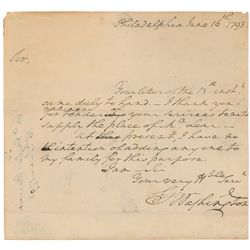 Philadelphia June 16th 1793
Sir,
Your letter of the 13th inst
came duly to hand. I thank you
for your services to
supply the place of Mr. Lear.
At present, I have no
intention of adding any one to
my family for this purpose.
I am Sir
Your very
G. Washington